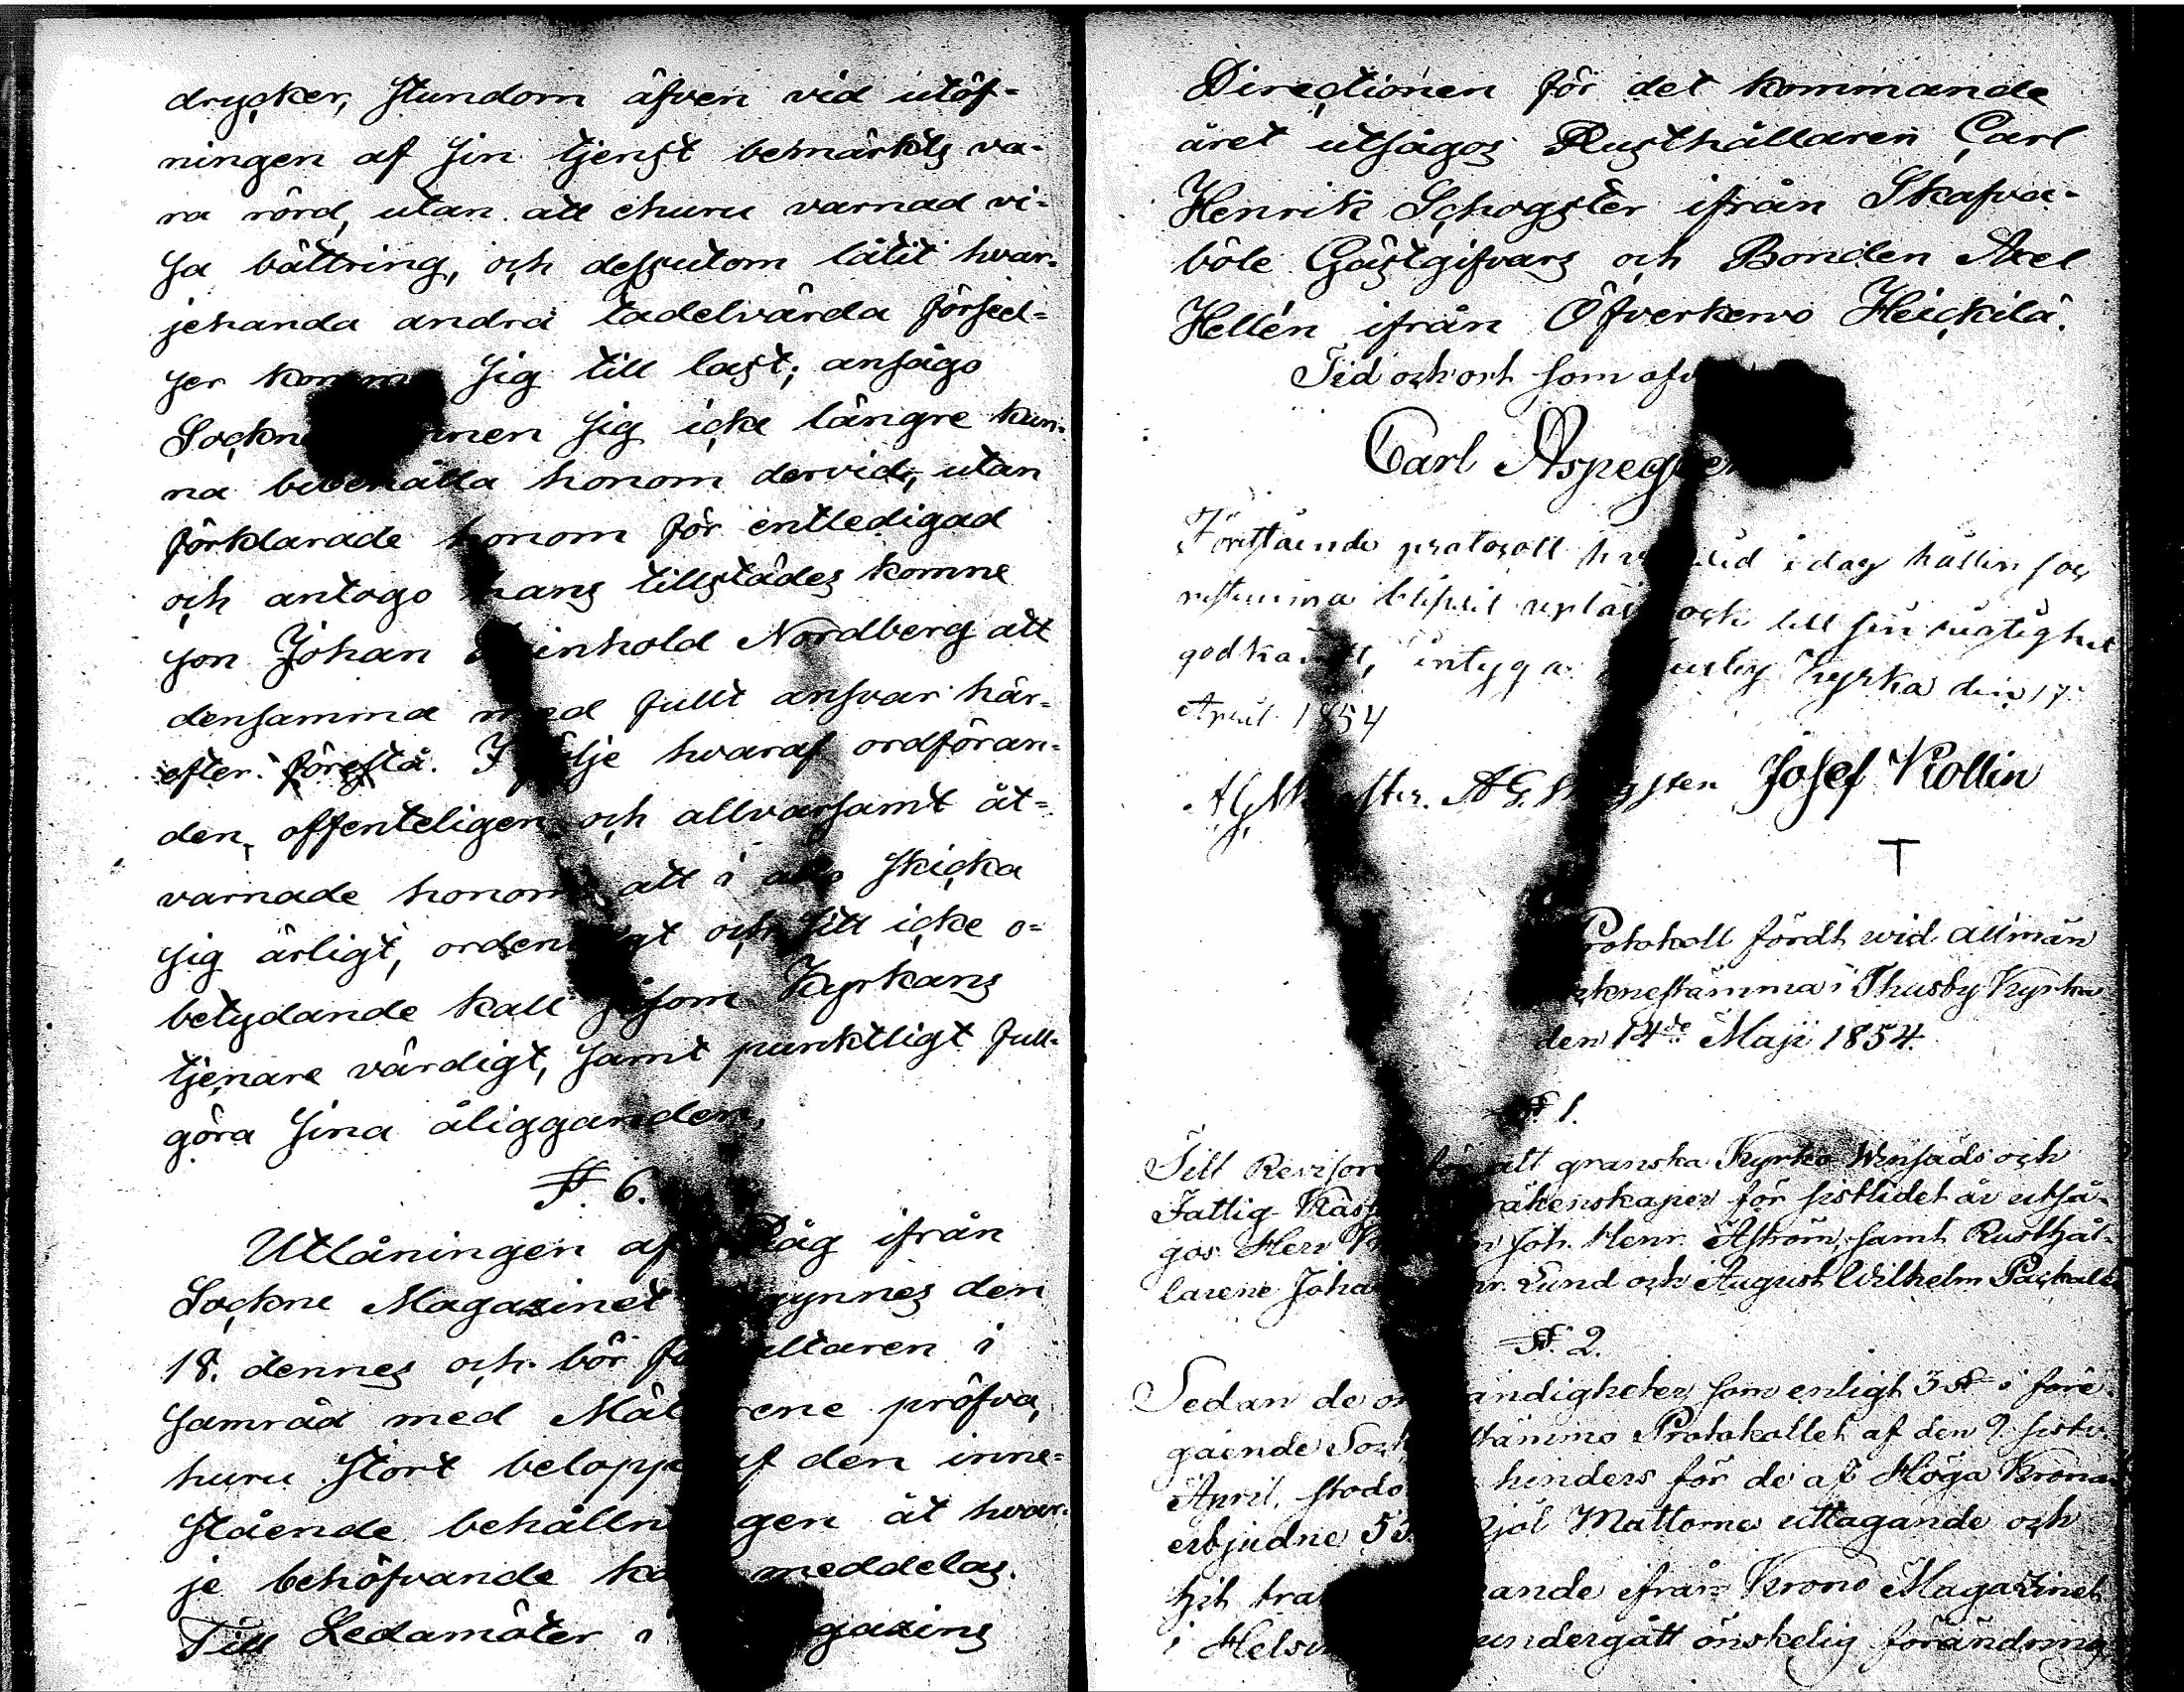 drycker, stundom äfven vid utöf-
ningen af sin tjenst bemärkts va-
ra rörd, utan att ehuru varnad vi-
sa bättring, och dessutom låtit hvar-
jehanda andra tadelvärda förseel-
ser komma sig till last; ansågo
sig icke längre kun-
na bibehålla honom dervid, utan
förklarade honom för entledigad
och antogo hans tillstädes komne
son Johan Reinhold Nordberg att
densamma med fullt ansvar här-
efter förestå. I följe hvaraf ordföran-
den, offenteligen och allvarsamt åt-
varnade honom att i allo skicka
sig ärligt, ordentligt och sitt icke o-
betydande kall såsom Kyrkans
tjenare värdigt, samt punktligt full-
göra sina åligganden.
§ 6.
Utlåningen af Råg ifrån
Sockne Magazinet begynnes den
18. dennes och bör förvaltaren i
samråd med Mätarene pröfva,
huru stort belopp af den inne-
stående behållningen åt hvar-
je behöfvande kan meddelas.
Till Ledamöter i Magazins
Directionen för det kommande
året utsågos Rusthållaren Carl
Henrik Schogster ifrån Skafva-
böle Gästgifvars och Bonden Axel
Hellén ifrån Öfverkervo Heickilä.
Tid och ort som ofvan
Carl Aspegren
Förestående protocoll har vid i dag hållen soc
nestämma blifvit upläst och till sin riktighet
godkändt, intyga Thusby Kyrka den 17
April 1854
Josef Kollin
Protokoll fördt wid allmän
Socknestämma i Thusby Kyrka
den 14de Maji 1854.
§ 1.
Till Revisorer för att granska Kyrko Winsäds och
Fattig-Kassa räkenskaper för sistlidet år utså-
gos Herr Joh. Henr. Åström, samt Rusthål-
larene Johan Henr. Lund och August Wilhelm
§ 2.
Sedan de omständigheter som enligt 3 § i före-
gående Sockne stämmo Protokollet af den 9 sistv.
April, stodo hinders för de af Höga Kronan
erbjudne Mattorne uttagande och
hit ifrån Krono Magazinet
i undergått önskelig förändring,